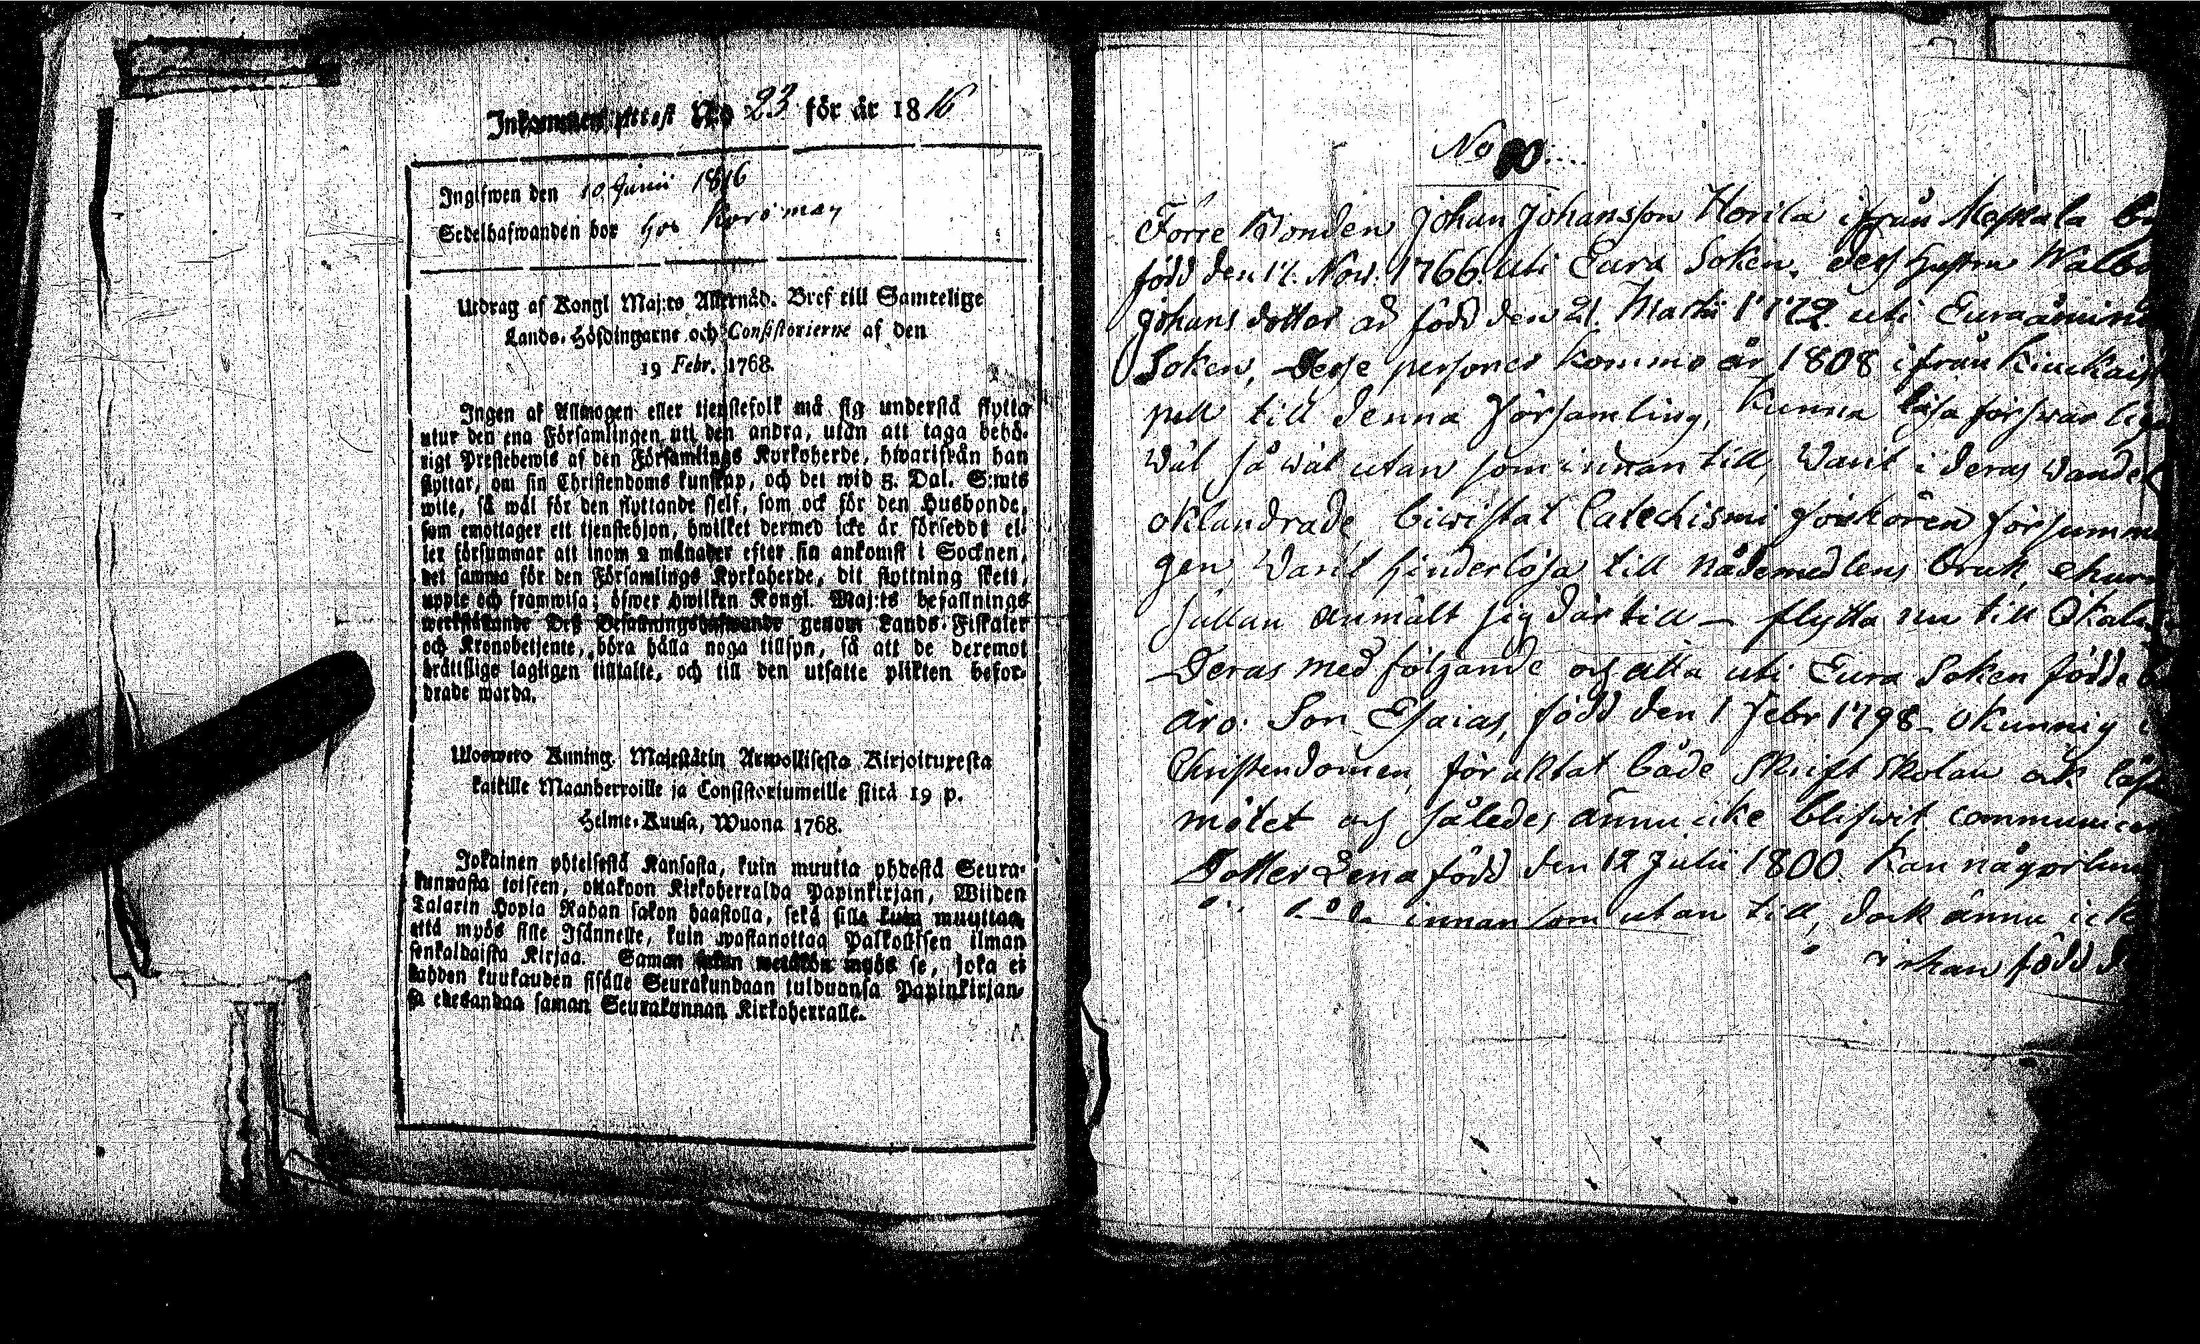 Inkommen Attest No 23 för år 1816
Ingifwen den 10 Junii 1816
Sedelhafwanden bor hos
Utdrag af Kongl Maj:ts Allernåd. Bref till Samtelige
Lands-Höfdingarne och Consistorierne af den
19 Febr. 1768.
Ingen af Allmogen eller tjenstefolk må sig understå flytta
utur den ena Församlingen uti den andra, utan att taga behö-
rigt Prestebewis af den Församlings Kyrkoherde, hwarifrån han
flyttar, om sin Christendoms kunskap, och det wid 5. Dal. S:mts
wite, så wäl för den flyttande sjelf, som ock för den Husbonde,
som emottager ett tjenstehjon, hwilket dermed icke är försedt el-
ler försummar att inom 2 månader efter sin ankomst i Socknen,
det samma för den Församlings Kyrkoherde, dit flyttning skett,
uppte och framwisa; öfwer hwilken Kongl. Maj:ts befallnings
werkställande Deß Befallningshafwande genom Lands-Fiskaler
och Kronobetjente, böra hålla noga tillsyn, så att de deremot
brättslige lagligen tilltalte, och till den utsatte plikten befor-
drade warda.
Uloswero Kuning. Majestätin Armollisesta Kirjoituxesta
kaikille Maanherroille ja Consistoriumeille siitä 19 p.
Helme-Kuusa, Wuona 1768.
Jokainen yhteisestä Kansasta, kuin muutta yhdestä Seura-
kunnasta toiseen, ottakoon Kirkoherralda Papinkirjan, Wiiden
Talarin Hopia Rahan sakon haastolla, sekä sille kuin muuttaa,
että myös sille Isännelle, kuin wastanottaa Palkollisen ilman
senkaldaista Kirjaa. Saman sakon wetäkön myös se, joka ei
kahden kuukauden sisälle Seurakundaan tulduansa Papinkirjan-
sa edesandaa saman Seurakunnan Kirkoherralle.
No
Förre Bonden Johan Johansson Horila ifrån
född den 17. Nov. 1766 uti Eura Soken, dess hustru
Johans dotter är född den 21 Martii 1772 uti
Soken, Desse personer kommo år 1808 ifrån
pell till denna Församling, Kunna läsa
wäl så wäl utan som innan till, warit i deras wandel
oklandrade, biwistat Catechismi förhören
gen, warit hinderlösa till nådemedlens bruk,
sällan anmält sig där till – flytta nu till
Deras med följande och alla uti Eura Soken födde
äro: Son Esaias, född den 1 Febr 1798 – okunnig
Christendomen, föraktat både Skrift Skolan och
mötet och således ännu icke blifwit
Dotter Lena född den 12 Julii 1800. Kan
innan som utan till, dock ännu
född